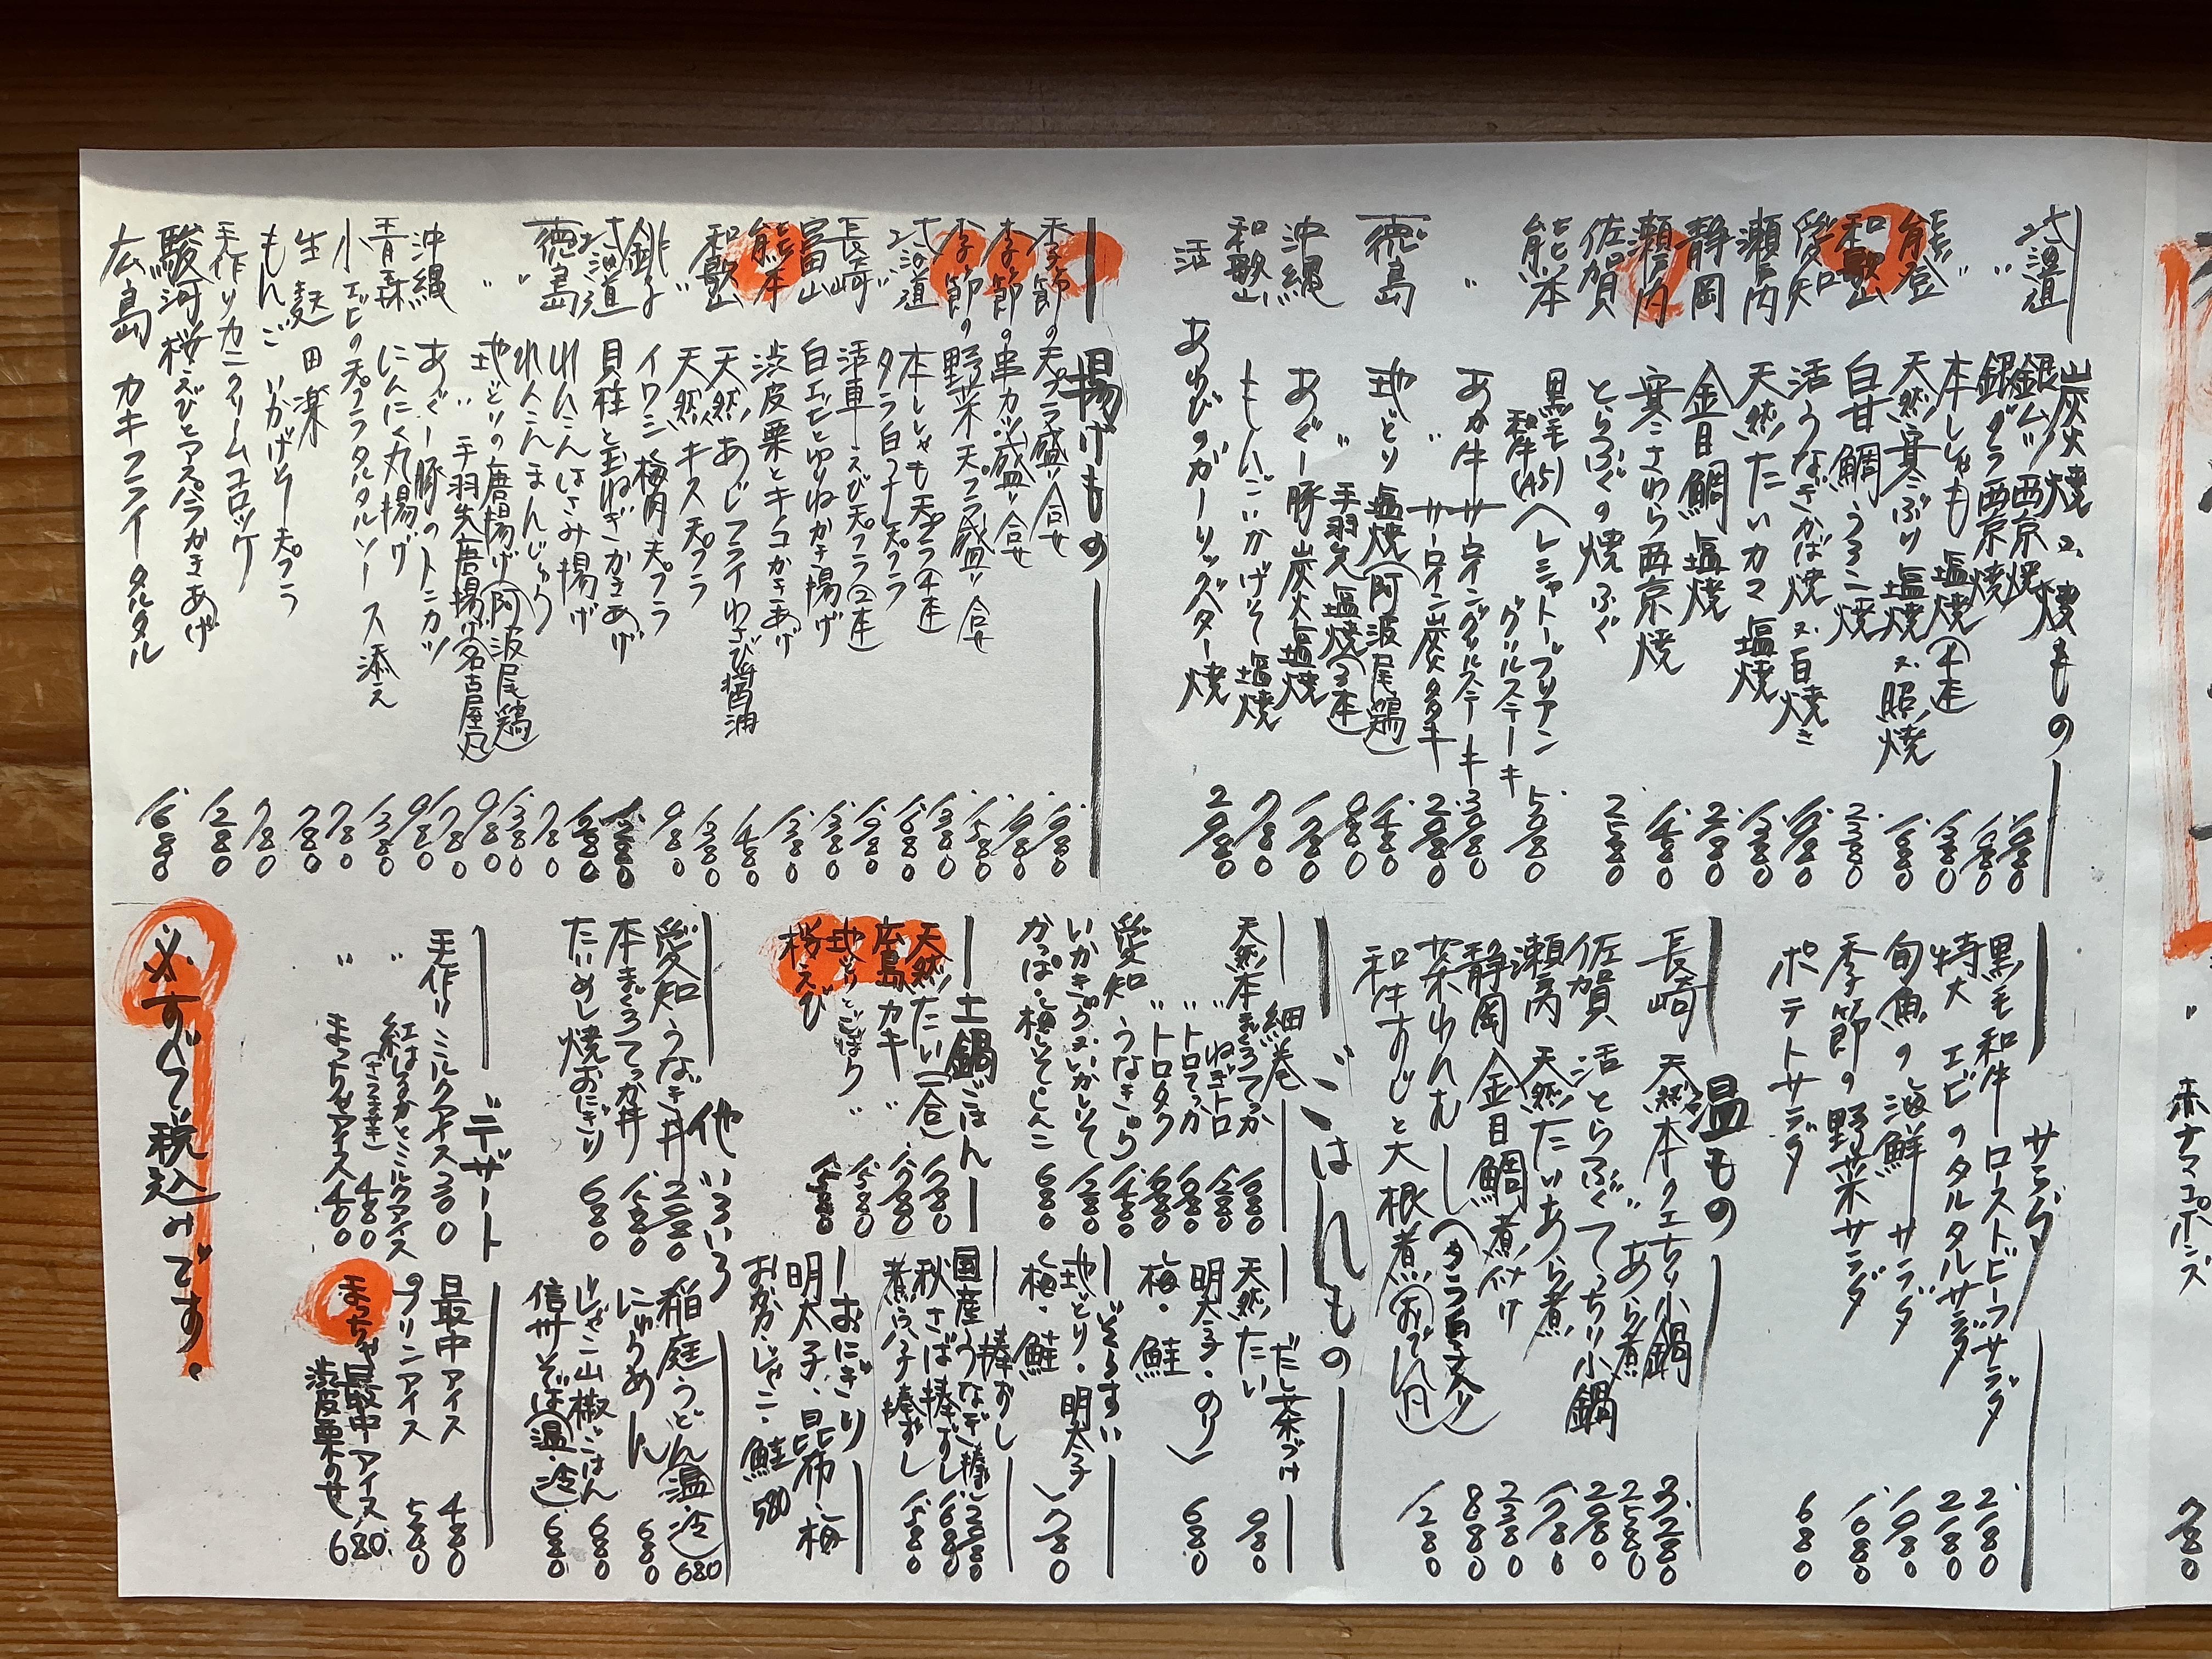 炭火焼又焼もの
北海道 銀ムツ西京焼 1,680
〃 銀ダラ西京焼 1,680
〃 本ししゃも塩焼(4本) 1,380
能登 天然寒ぶり塩焼又照焼 1,680
和歌山 白甘鯛うろこ焼 2,380
愛知 活うなぎかば焼又白焼き
瀬戸内 天然たいカマ塩焼 1,380
静岡 金目鯛塩焼
瀬戸内 寒さわら西京焼 1,480
佐賀 とらふぐの焼ふぐ
熊本 黒毛和牛(A5)ヘレシャトーブリアングリルステーキ
〃 あか牛サーロイングリルステーキ
〃 サーロイン炭タタキ
徳島 地どり塩焼(阿波尾鶏) 1,480
〃 手羽先塩焼(3本) 980
沖縄 あぐー豚炭火塩焼
和歌山 もんごいかげそ塩焼 780
活 あわびのガーリックバター焼
揚げもの
季節の天プラ盛り合せ
季節の串カツ盛り合せ
季節の野菜天プラ盛り合せ
北海道 本ししゃも天プラ(4本) 1,380
〃 タラ白子天プラ
長崎 活車えび天プラ(2本)
富山 白エビとゆりねかき揚げ 1,380
熊本 渋皮栗とキノコかきあげ 1,380
和歌山 天然あじフライわさび醤油 1,480
〃 天然キス天プラ 1,380
銚子 イワシ梅肉天プラ 980
北海道 貝柱と玉ねぎかきあげ
れんこんはさみ揚げ
〃 れんこんまんじゅう 780
徳島 地どりの唐揚げ(阿波尾鶏) 1,380
〃 手羽先唐揚げ(名古屋風) 980
沖縄 あぐー豚のトンカツ 1,780
青森 にんにく丸揚げ 980
小エビの天プラタルタルソース添え 1,380
生麩田楽 780
もんごいかげそ天プラ 780
手作りカニクリームコロッケ 780
駿河桜えびとアスパラかきあげ 1,280
広島 カキフライタルタル
サラダ
黒毛和牛ローストビーフサラダ 2,180
特大エビのタルタルサラダ 2,180
旬魚の海鮮サラダ
季節の野菜サラダ 1,080
ポテトサラダ 680
温もの
長崎 天然本クエちり小鍋 3,280
〃 あら煮 2,580
佐賀 活とらふぐてっちり小鍋
瀬戸内 天然たいあら煮 1,780
静岡 金目鯛煮付け 2,380
茶わんむし(タラ白子入り) 880
和牛すじと大根煮(おでん風) 1,280
ごはんもの
細巻
天然本まぐろてっか
〃 ねぎトロ
〃 トロてっか
〃 トロタク
愛知 うなきゅう 1,480
いかきゅう又いかしそ 1,280
かっぱ・梅しそ・しんこ 680
だし茶づけ
天然たい 980
明太子・のり
梅・鮭 680
土鍋ごはん
天然たい(一合)
広島カキ
地どりとごぼう 1,580
桜えび
ぞうすい
地どり・明太子
梅・鮭 780
棒ずし
国産うなぎ棒
秋さば棒ずし 1,680
煮穴子棒ずし 1,580
おにぎり
明太子・昆布・梅
おかか・じゃこ・鮭 580
他いろいろ
愛知うなぎ丼
本まぐろてっか丼
たいめし焼おにぎり 680
稲庭うどん(温・冷) 680
にゅうめん 680
じゃこ山椒ごはん 680
信州そば(温・冷) 680
デザート
手作りミルクアイス 300
〃 紅はるかとミルクアイス(さつま芋) 480
〃 まっちゃアイス
最中アイス 480
プリンアイス 580
まっちゃ最中アイス渋皮栗のせ 680
※すべて税込みです。
赤ナマコポンズ